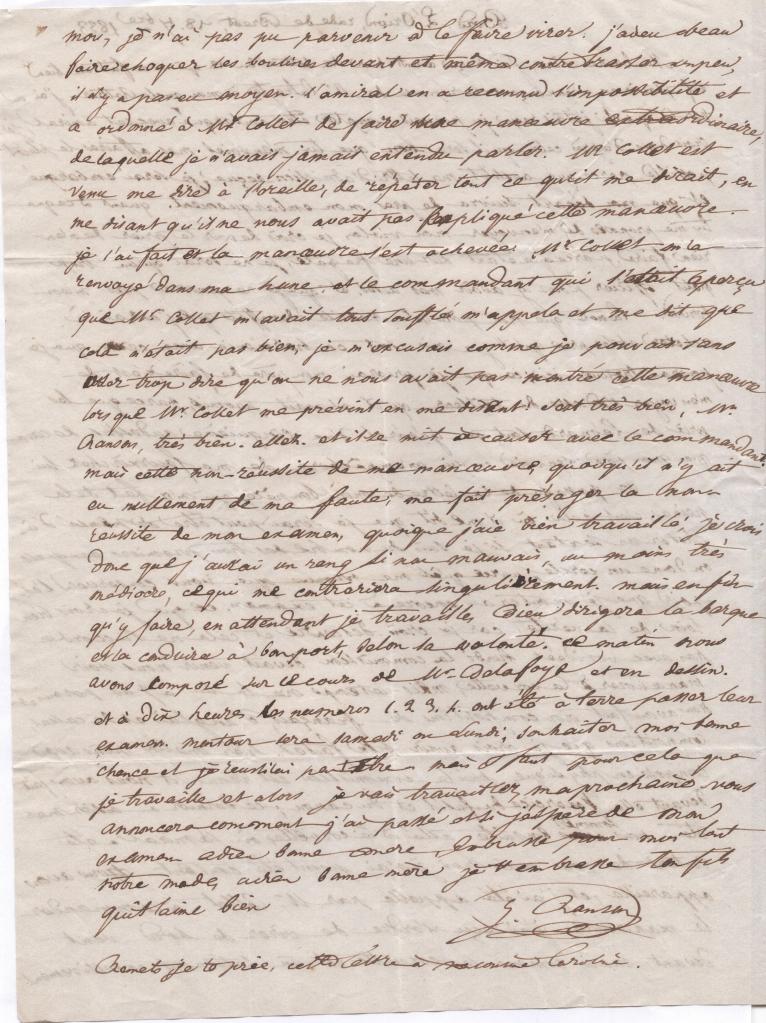 moi, je n'ai pas pu parvenir à le faire virer. j'ai eu beau
faire choquer les boulines devant et même contrebrasser un peu,
il n'y a pas eu moyen. l'amiral en a reconnu l'impossibilité et
a ordonné à Mr Collet de faire une manœuvre extraordinaire,
de laquelle je n'avais jamais entendu parler. Mr Collet est
venu me dire à l'oreille, de répéter tout ce qu'il me dirait, en
me disant qu'il ne nous avait pas expliqué cette manœuvre.
je l'ai fait et la manœuvre s'est achevée. Mr Collet m'a
renvoyé dans ma hune et le commandant qui s'était aperçu
que Mr Collet m'avait tout soufflé m'appela et me dit que
cela n'était pas bien, je m'excusais comme je pouvais sans
oser trop dire qu'on ne nous avait pas montré cette manœuvre
lorsque Mr Collet me prévint en me disant: c'est très bien, Mr
Ranson, très bien. allez. et il se mit à causer avec le commandant.
mais cette non-réussite de ma manœuvre, quoiqu'il n'y ait
eu nullement de ma faute, me fait présager la non
réussite de mon examen, quoique j'aie bien travaillé, je crois
donc que j'aurai un rang si non mauvais, au moins très
médiocre, ce qui me contrariera singulièrement. mais enfin
qu'y faire, en attendant je travaille, Dieu dirigera la barque
et la conduira à bon port, selon sa volonté. ce matin nous
avons composé sur le cours de Mr Delafoye et en dessin.
et à dix heures les numéros 1. 2. 3. 4. ont été à terre passer leur
examen. mon tour sera samedi ou Lundi, souhaiter moi bonne
chance et je réussirai peut être mais il faut pour cela que
je travaille et alors je vais travailler, ma prochaine vous
annoncera comment j'ai passé et si j'espère de mon
examen adieu bonne mère, embrasse pour moi tout
notre monde, adieu bonne mère je t'embrasse ton fils
qui t'aime bien
Ranson
Remets je te prie, cette lettre à ma cousine Caroline.